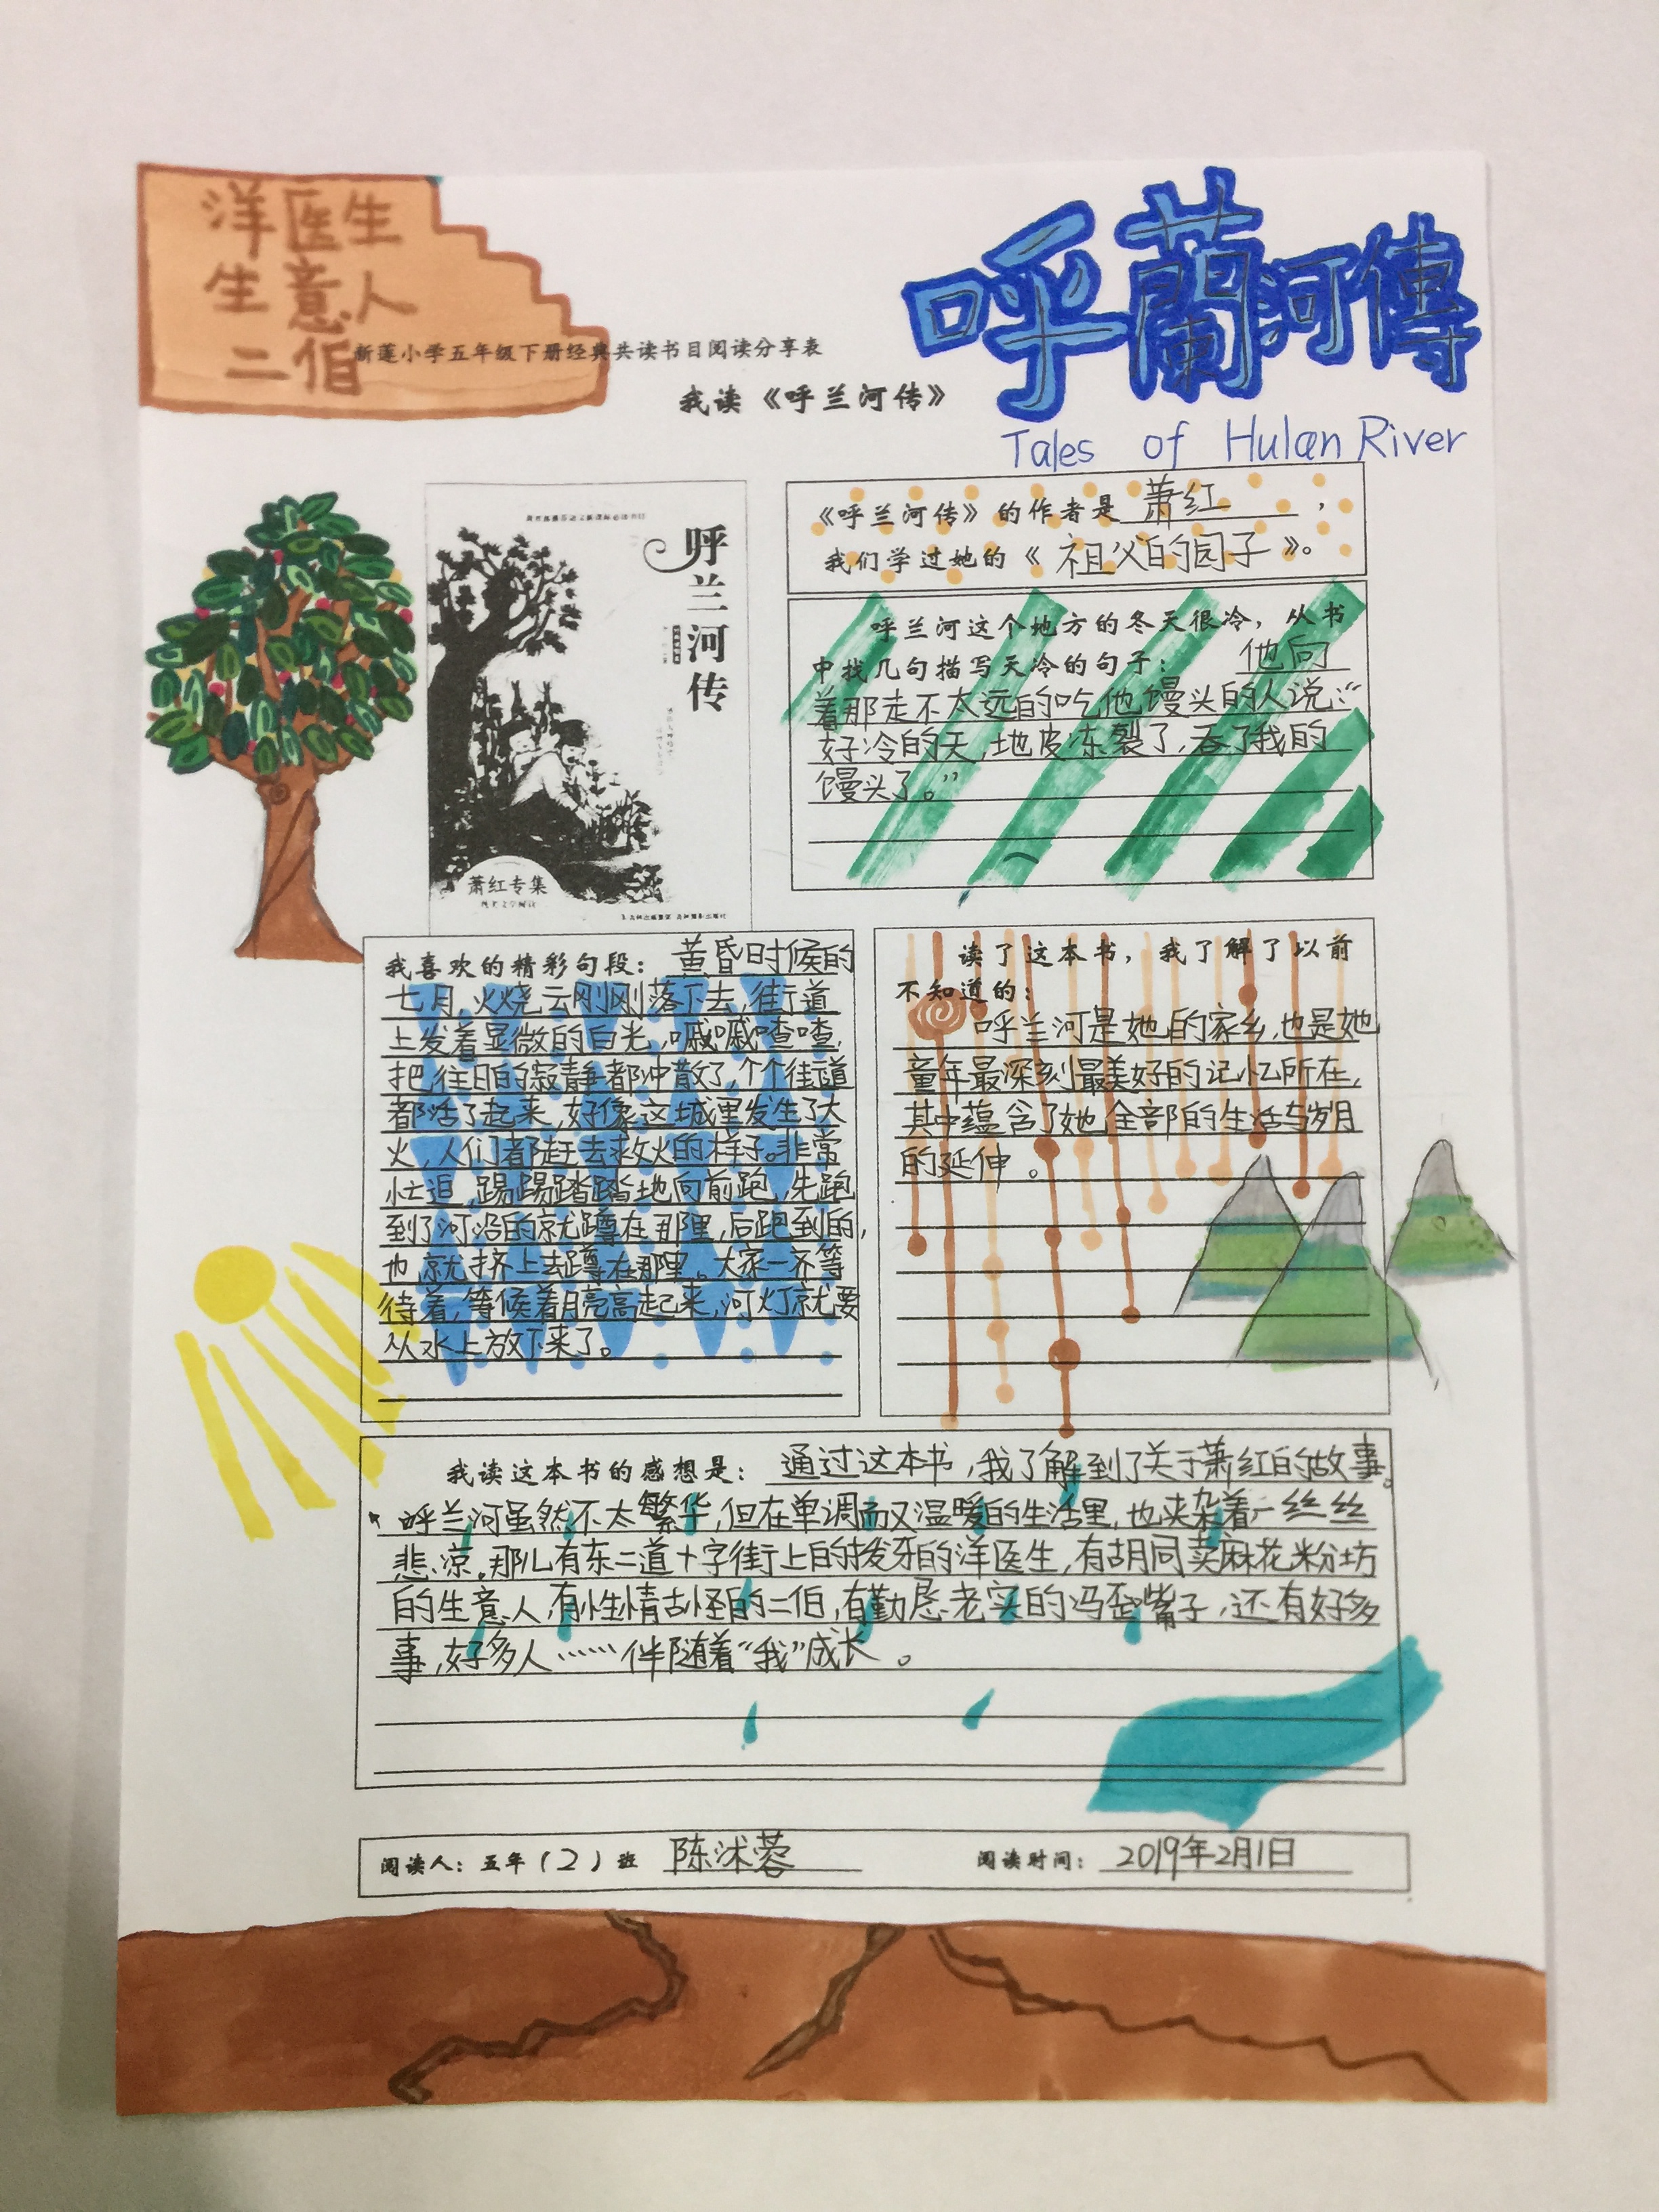 洋医生
生意人
二伯
呼蘭河傳
Tales of Hulan River
新莲小学五年级下册经典共读书目阅读分享表
我读《呼兰河传》
呼兰河传
萧红专集
《呼兰河传》的作者是 萧红 ，
我们学过她的《 祖父的园子 》。
呼兰河这个地方的冬天很冷，从书
中找几句描写天冷的句子： 他向
着那走不太远的吃他馒头的人说：“
好冷的天，地皮冻裂了，吞了我的
馒头了。”
我喜欢的精彩句段： 黄昏时候的
七月，火烧云刚刚落下去，街道
上发着显微的白光，嘁嘁喳喳，
把往日的寂静都冲散了，个个街道
都活了起来，好像这城里发生了大
火，人们都赶去救火的样子。非常
忙迫，踢踢踏踏地向前跑，先跑
到了河沿的就蹲在那里，后跑到的，
也就挤上去蹲在那里。大家一齐等
待着，等候着月亮高起来，河灯就要
从水上放下来了。
读了这本书，我了解了以前
不知道的：
呼兰河是她的家乡，也是她
童年最深刻最美好的记忆所在，
其中蕴含了她全部的生活与岁月
的延伸。
我读这本书的感想是： 通过这本书，我了解到了关于萧红的故事。
呼兰河虽然不太繁华，但在单调而又温暖的生活里，也夹杂着一丝丝
悲凉。那儿有东二道十字街上的拔牙的洋医生，有胡同卖麻花粉坊
的生意人，有性情古怪的二伯，有勤恳老实的冯歪嘴子，还有好多
事，好多人……伴随着“我”成长。
阅读人：五年（2）班 陈沭蓉
阅读时间： 2019年2月1日